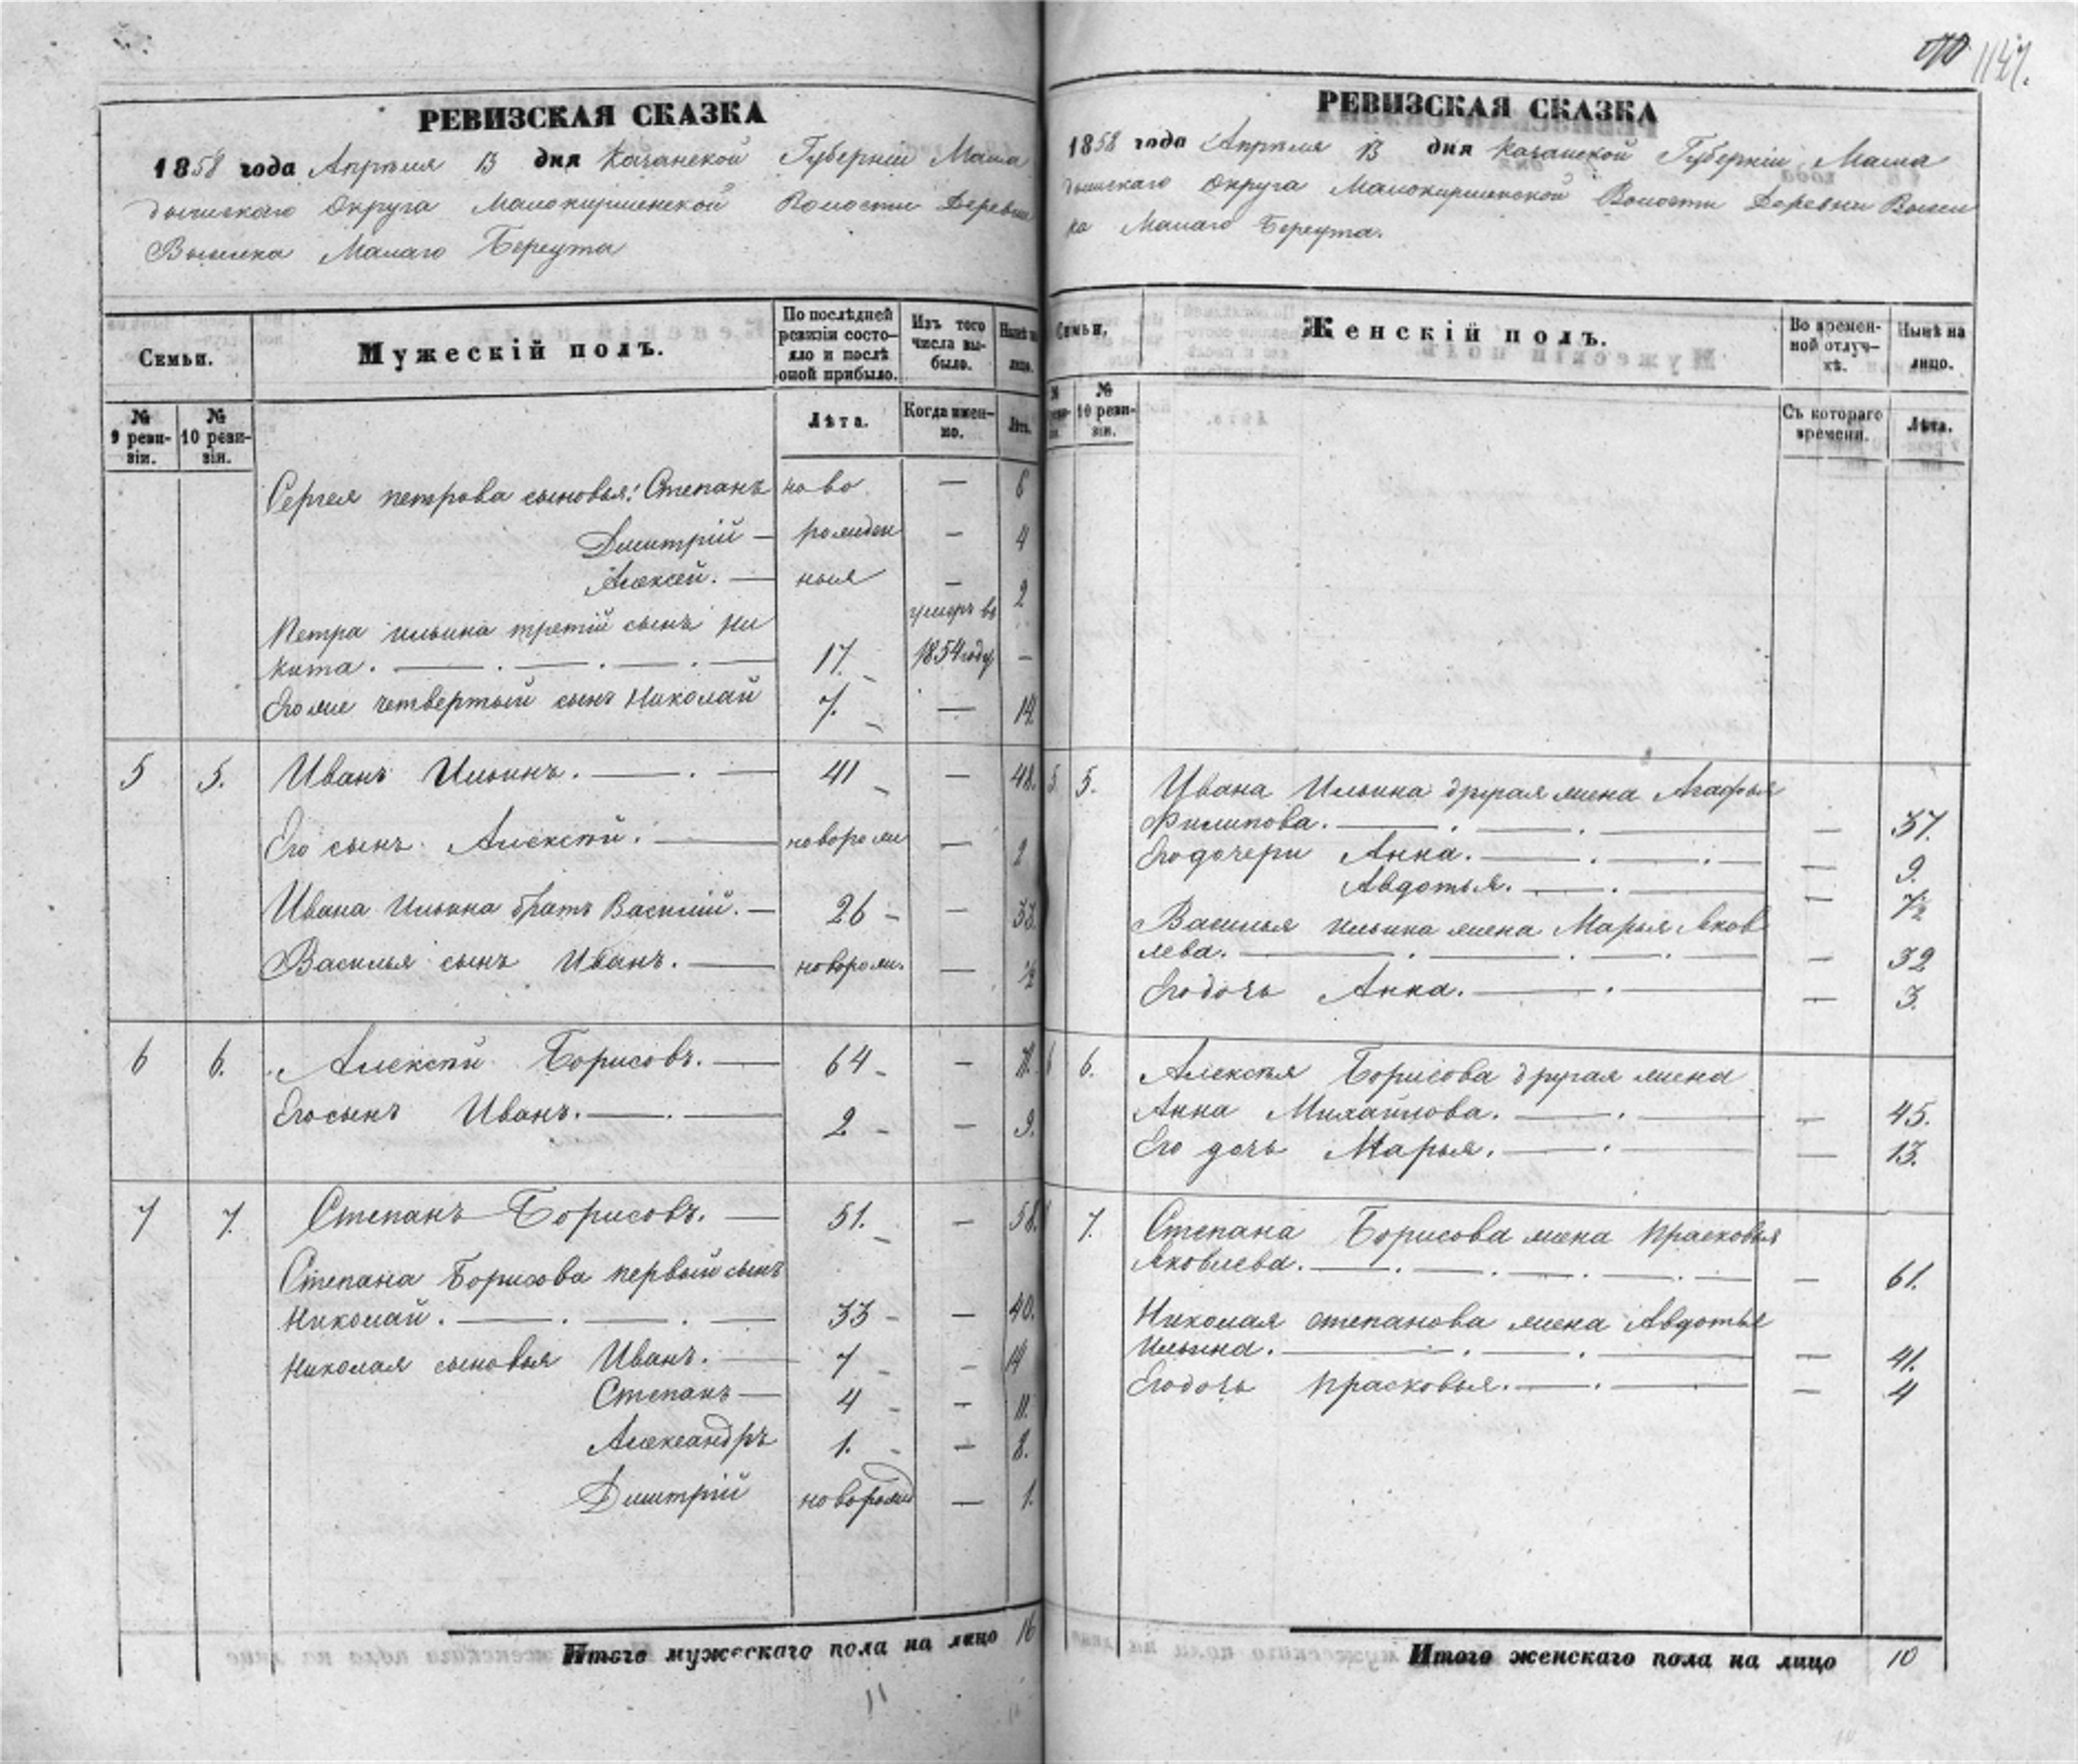 1147.
РЕВИЗСКАЯ СКАЗКА
1858 года Апрѣля 13 дня Казанской Губерніи Мама
дышскаго Округа Малокирменской Волости Деревни
Выселка Малаго Берсута
Семьи.
Мужескій полъ.
По послѣдней
ревизіи состо-
яло и послѣ
оной прибыло.
Изъ того
числа вы-
было.
Нынѣ на
лицо.
№
9 реви-
зіи.
№
10 реви-
зіи.
Лѣта.
Когда имен-
но.
Лѣта.
Сергея петрова сыновья: Степанъ ново — 6
Дмитрій — рожден — 4
Алексей. — ныя — 2
Петра ильина третій сынъ Ни умеръ въ
кита. 17. 1854 году —
Егоже четвертый сынъ Николай 7. — 14.
5 5. Иванъ Ильинъ. 41 — 48.
Его сынъ Алексѣй. новорож — 2
Ивана Ильина братъ Василій. — 26 — 33.
Василья сынъ Иванъ. — новорож. — ½
6 6. Алексѣй Борисовъ. — 64 — 71.
Его сынъ Иванъ. 2 — 9.
7 7. Степанъ Борисовъ. — 51. — 58.
Степана Борисова первый сынъ
Николай. 33 — 40.
Николая сыновья Иванъ. 7 — 14
Степанъ — 4 — 11.
Александръ 1. — 8.
Дмитрій новорожд — 1.
Итого мужескаго пола на лицо 16
11
РЕВИЗСКАЯ СКАЗКА
1858 года Апрѣля 13 дня Казанской Губерніи Мама
дышскаго Округа Малокирменской Волости Деревни Высел
ка Малаго Берсута.
Семьи.
Женскій полъ.
Во времен-
ной отлуч-
кѣ.
Нынѣ на
лицо.
№
10 реви-
зіи.
Съ котораго
времени.
Лѣта.
5 5. Ивана Ильина другая жена Агафья
Филипова. — 37.
Его дочери Анна. — 9.
Авдотья. — ½
Василья ильина жена Марья Яков
лева. — 32
Его дочь Анна. — 3.
6 6. Алексѣя Борисова другая жена
Анна Михайлова. — 45.
Его дочь Марья. — 13.
7. Степана Борисова жена Прасковья
Яковлева. — 61.
Николая степанова жена Авдотья
Ильина. — 41.
Его дочь Прасковья. — 4
Итого женскаго пола на лицо 10